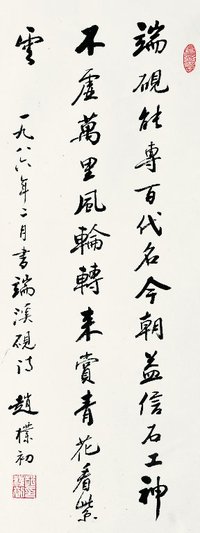 端硯能專百代名今朝益信石工神
不虛萬里風輪轉来賞青花看紫
雲
一九八六年二月書端溪硯诗 趙樸初